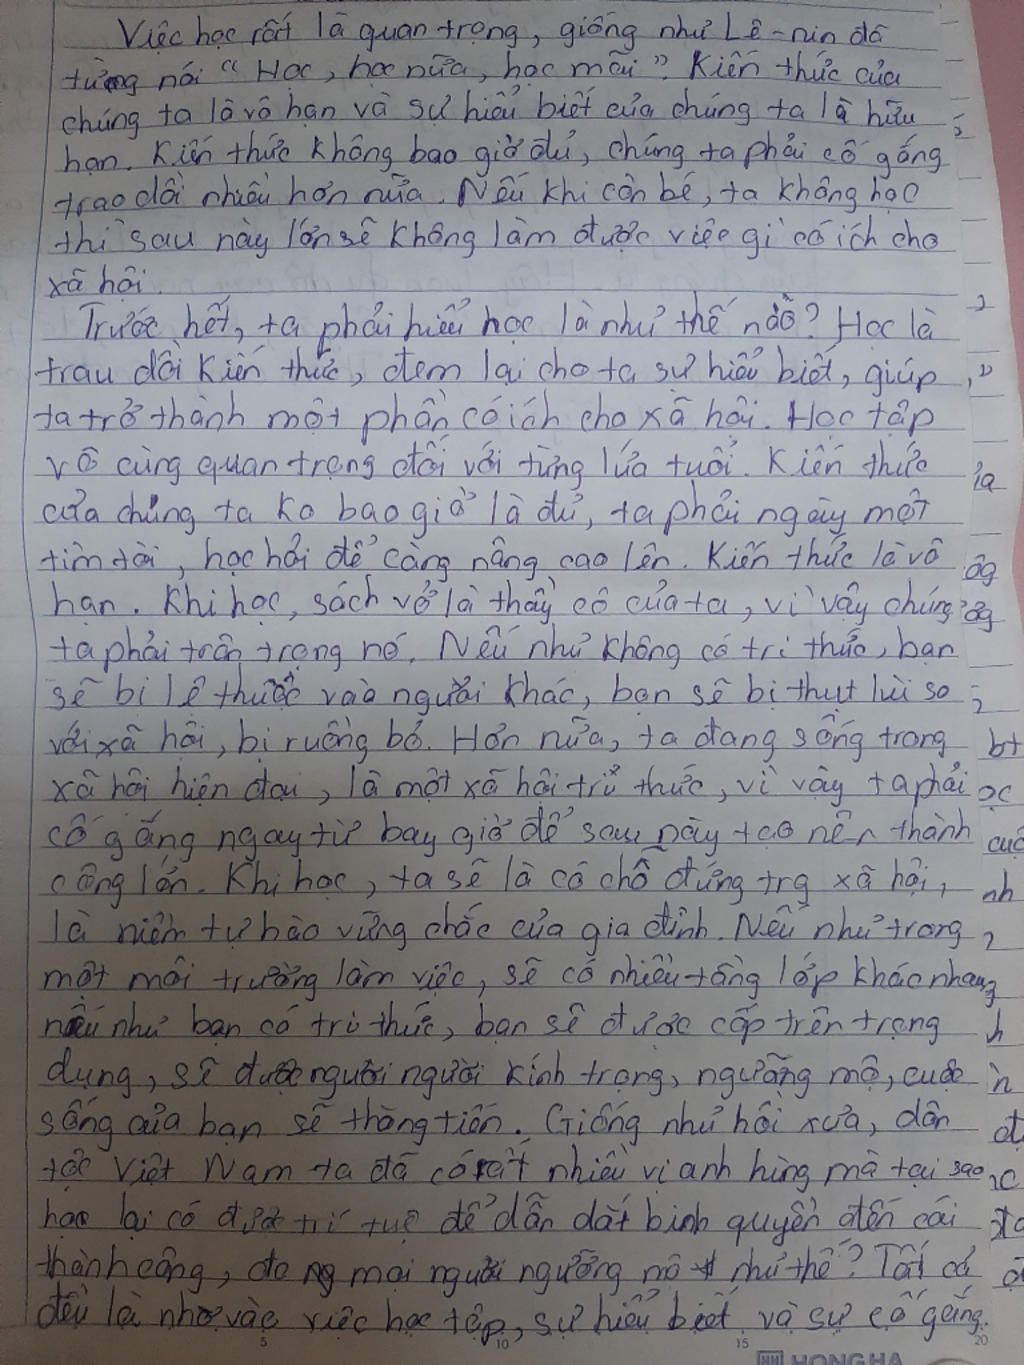 Việc học rất là quan trọng, giống như Lê-nin đã
từng nói "Học, học nữa, học mãi". Kiến thức của
chúng ta là vô hạn và sự hiểu biết của chúng ta là hữu
hạn. Kiến thức không bao giờ đủ, chúng ta phải cố gắng
trao dồi nhiều hơn nữa. Nếu khi còn bé, ta không học
thì sau này lớn sẽ không làm được việc gì có ích cho
xã hội.
Trước hết, ta phải hiểu học là như thế nào? Học là
trau dồi kiến thức, đem lại cho ta sự hiểu biết, giúp
ta trở thành một phần có ích cho xã hội. Học tập
vô cùng quan trọng đối với từng lứa tuổi. Kiến thức
của chúng ta ko bao giờ là đủ, ta phải ngày một
tìm tòi, học hỏi để càng nâng cao lên. Kiến thức là vô
hạn. Khi học, sách vở là thầy cô của ta, vì vậy chúng
ta phải trân trọng nó. Nếu như không có tri thức, bạn
sẽ bị lệ thuộc vào người khác, bạn sẽ bị thụt lùi so
với xã hội, bị ruồng bỏ. Hơn nữa, ta đang sống trong
xã hội hiện đại, là một xã hội tri thức, vì vậy ta phải
cố gắng ngay từ bay giờ để sau này tạo nên thành
công lớn. Khi học, ta sẽ là có chỗ đứng trg xã hội,
là niềm tự hào vững chắc của gia đình. Nếu như trong
một môi trường làm việc, sẽ có nhiều tầng lớp khác nhau,
nếu như bạn có tri thức, bạn sẽ được cấp trên trọng
dụng, sẽ được người người kính trọng, ngưỡng mộ, cuộc
sống của bạn sẽ thăng tiến. Giống như hồi xưa, dân
tộc Việt Nam ta đã có rất nhiều vị anh hùng mà tại sao
họ lại có được trí tuệ để dẫn dắt binh quyền đến cái
thành công, mọi người ngưỡng mộ như thế? Tất cả
đều là nhờ vào việc học tập, sự hiểu biết và sự cố gắng.
5 10 15 20
HONG HA